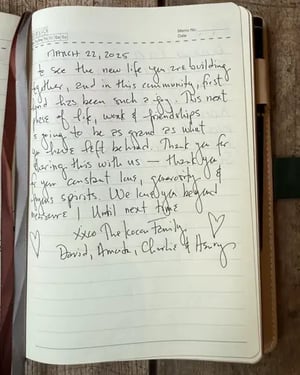 Memo No.
Date
MARCH 22, 2025
to see the new life you are building
together, and in this community, first
hand has been such a joy. This next
phase of life, work & friendships
is going to be as grand as what
you have left behind. Thank you for
sharing this with us — thank you
for your constant love, generosity, &
spirits. We love you beyond
measure! Until next time
xxoo The Family,
David, Amanda, Charlie &